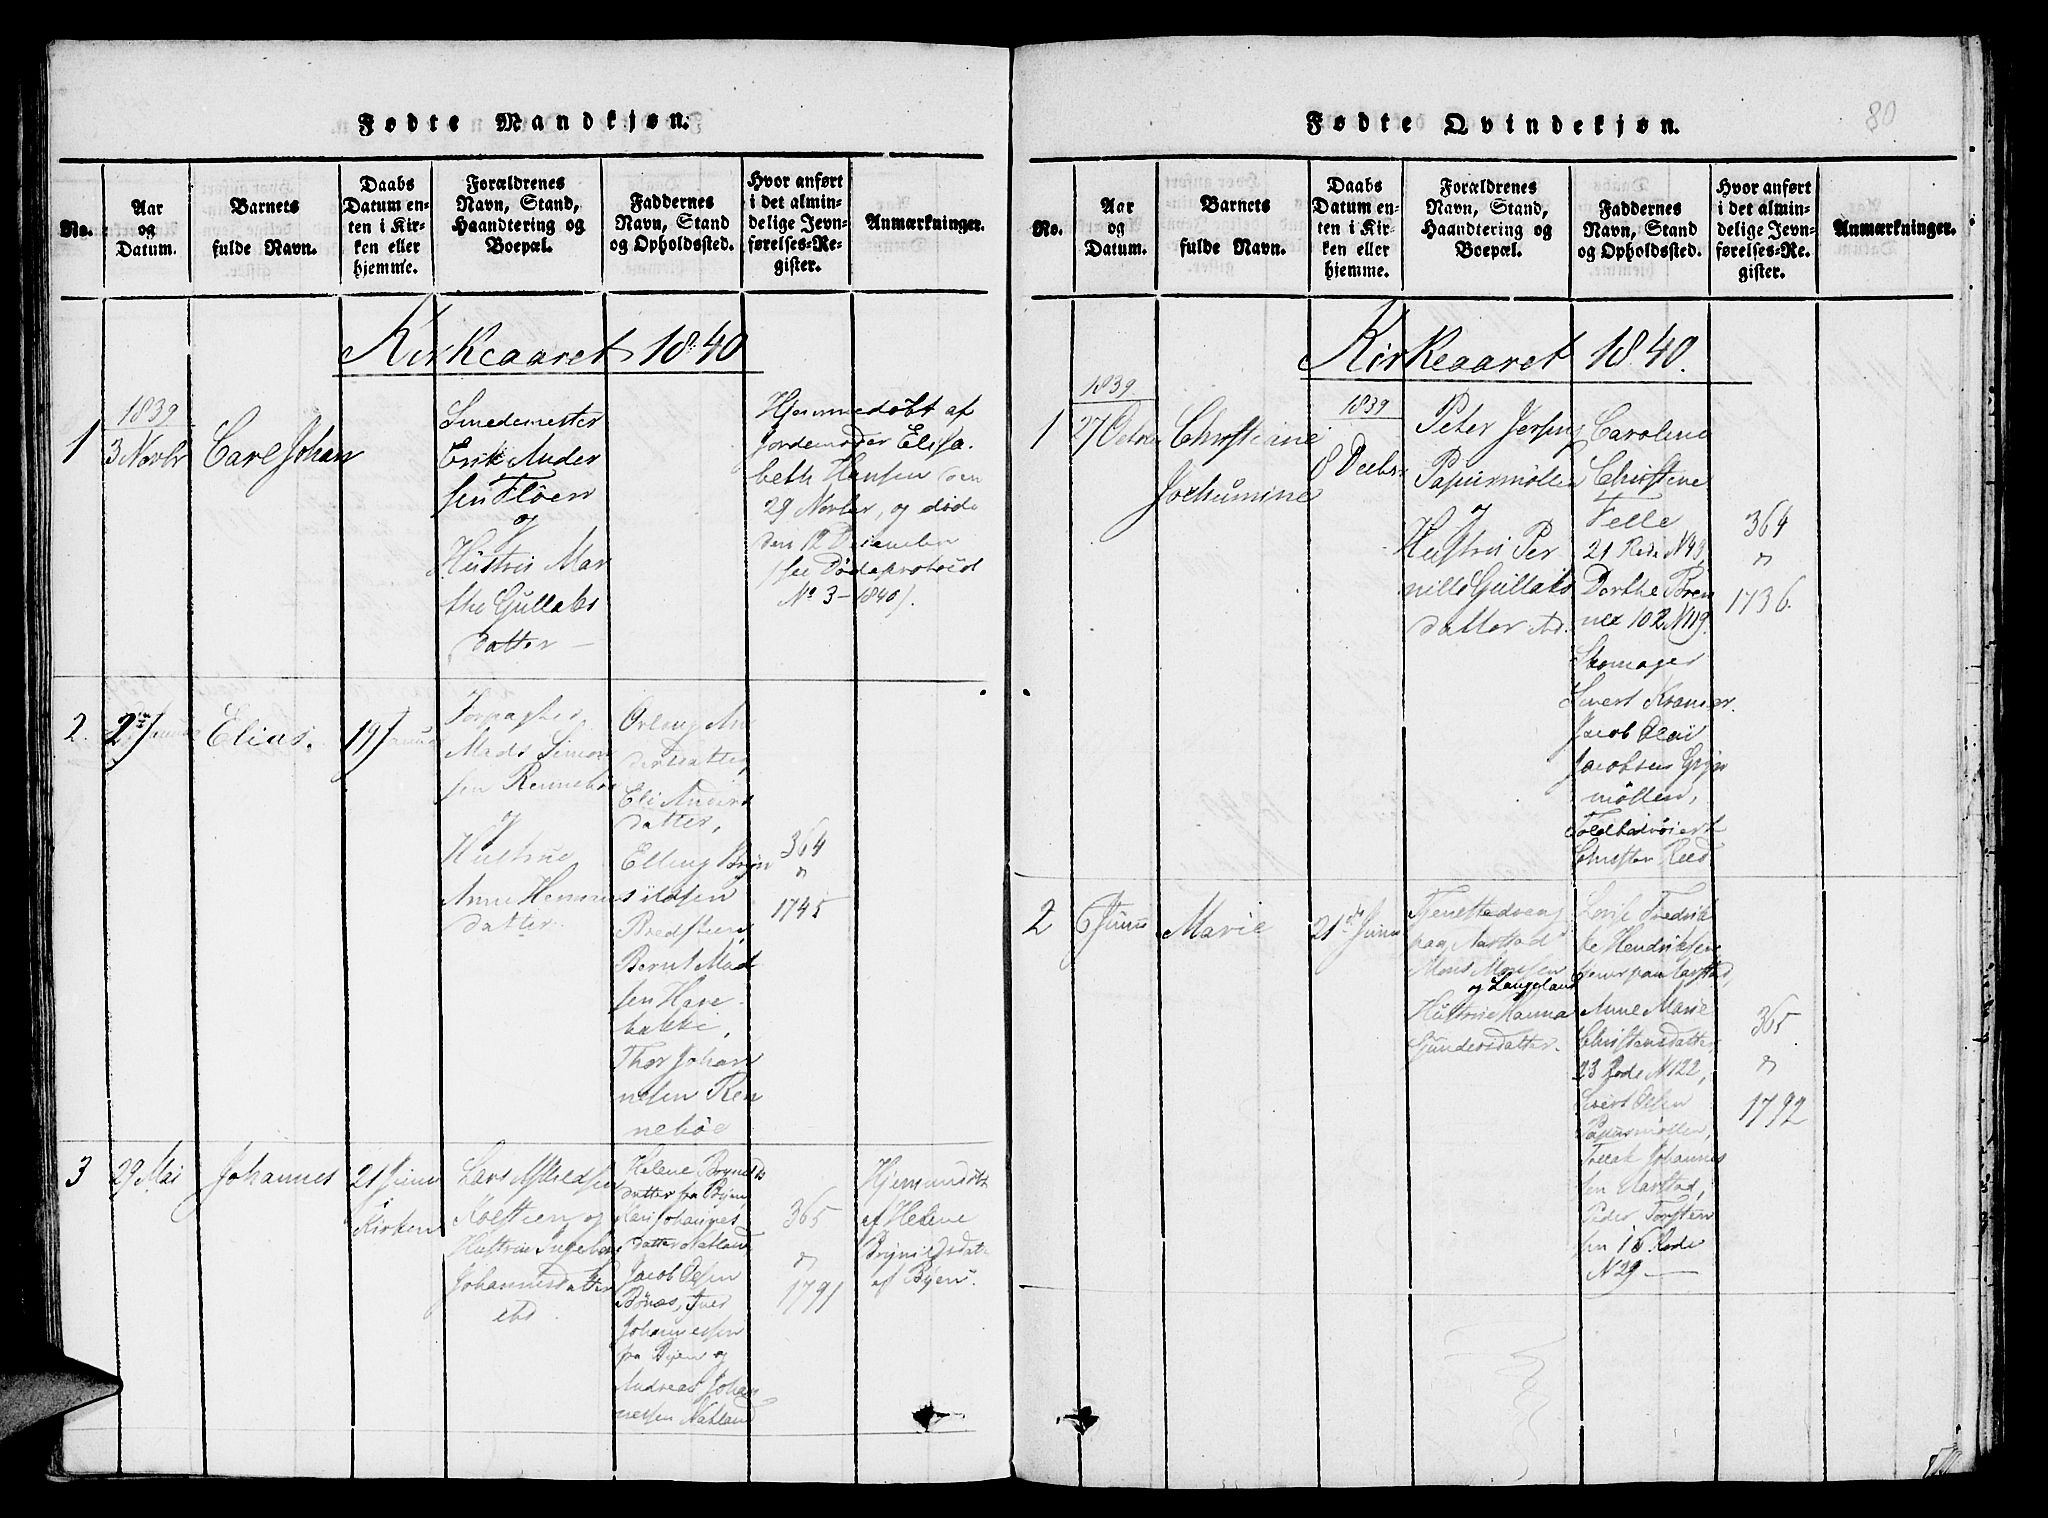 Fødte Mandkjøn.
No.
Aar
og
Datum.
Barnets
fulde Navn.
Daabs
Datum en-
ten i Kir-
ken eller
hjemme.
Forældrenes
Navn, Stand,
Haandtering og
Boepæl.
Faddernes
Navn, Stand
og Opholdssted.
Hvor anført
i det almin-
delige Jevn-
førelses-Re-
gister.
Anmærkninger.
Kirkeaaret 1840
1
1839
3 Novbr
Carl Johan
Smedemester
Erik Ander
sen Fløen
og
Hustrue Mar
the Gullaks
datter —
Hjemmedøbt af
Jordemoder Elisa
beth Hansen den
29 Novber, og døde
den 12 December
(see Dødsprotocol
No 3 - 1840).
2.
2 Januar
Elias.
19 Januar
Forpagter
Mads Simon
sen Rennebøe
og
Hustrue
Anne
datter
datter,
Eli Anders
datter,
Elling Bryn
ildsen
Bredsteen,
Bernt Mad
sen Hare
bakke,
Thor Johan
nesen Ren
nebøe
364
1745
3
29 Mai
Johannes
21 Juni
Kirken
Lars
og
Hustrue Ingeborg
Johannesdatter
ibd
Helene Brynilds
datter fra Byen
Kari Johannes
datter Natland
Jacob Olsen
Bønæs, Iver
Johannessen
fra Byen og
Andreas Johan
nessen Natland
365
1791
Hjemmedøbt
af Helene
Brynildsdatr
af Byen.
80
Fødte Qvindekjøn.
No.
Aar
og
Datum.
Barnets
fulde Navn.
Daabs
Datum en-
ten i Kir-
ken eller
hjemme.
Forældrenes
Navn, Stand,
Haandtering og
Boepæl.
Faddernes
Navn, Stand
og Opholdssted.
Hvor anført
i det almin-
delige Jevn-
førelses-Re-
gister.
Anmærkninger.
Kirkeaaret 1840.
1
1839
27 Octbr
Christiane
Jochumine
1839
8 Decbr
Peter Jersin
Papiirmøllen
og
Hustrue Per
nille Gullaks
datter
Caroline
Christine
Felle
21 Rode N 49,
Dorthe Bren
nex 10 R N 119.
Skomager
Sivert Kramer.
Jacob Olai
Jacobsen
møllen,
Christen
364
1736.
2
6 Juni
Marie
21de Juni
paa Aarstad
Mons Monsen
Langeland
og
Hustrue Hanna
Gundersdatter.
Lovise Fredrik
ke Hendriksen
tjener paa Aarstad,
Anne Marie
Christensdatter
23 Rode N 122,
Sivert Olsen
Papiirmøllen,
Johannes
sen Aarstad,
Peder Torsten
sen 16 Rode
N 29 —
365
1792